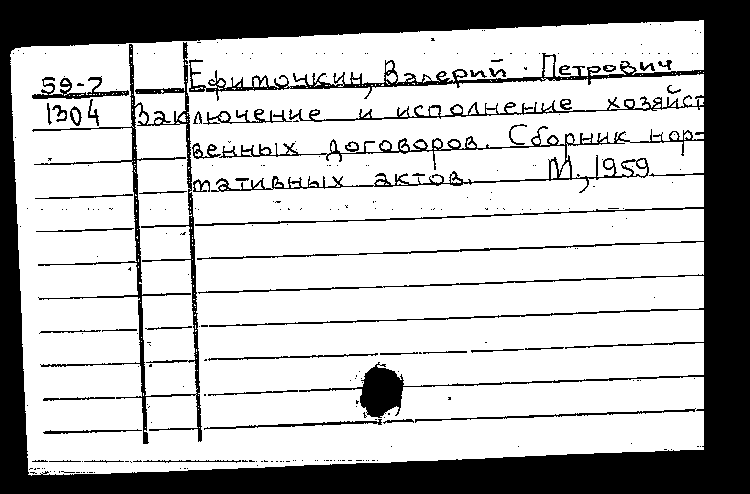 59-7 Ефимочкин, Валерий Петрович
1304 Заключение и исполнение хозяйст
венных договоров. Сборник нор-
мативных актов. М., 1959.